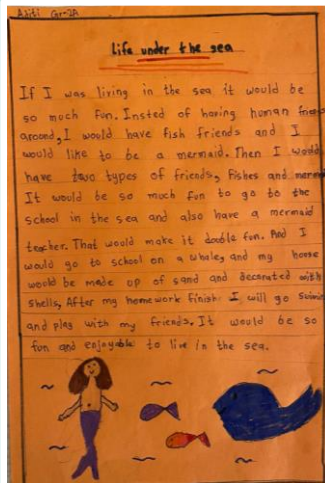 Aditi Gr-2A
Life under the sea
If I was living in the sea it would be
so much fun. Insted of having human friends
aroond, I would have fish friends and I
would like to be a mermaid. Then I would
have two types of friends, fishes and mermaid
It would be so much fun to go to the
school in the sea and also have a mermaid
teacher. That would make it double fun. And I
would go to school on a whale, and my house
would be made up of sand and decorated with
shells, After my homework finish I will go swimi
and play with my friends. It would be so
fun and enjoyable to live in the sea.